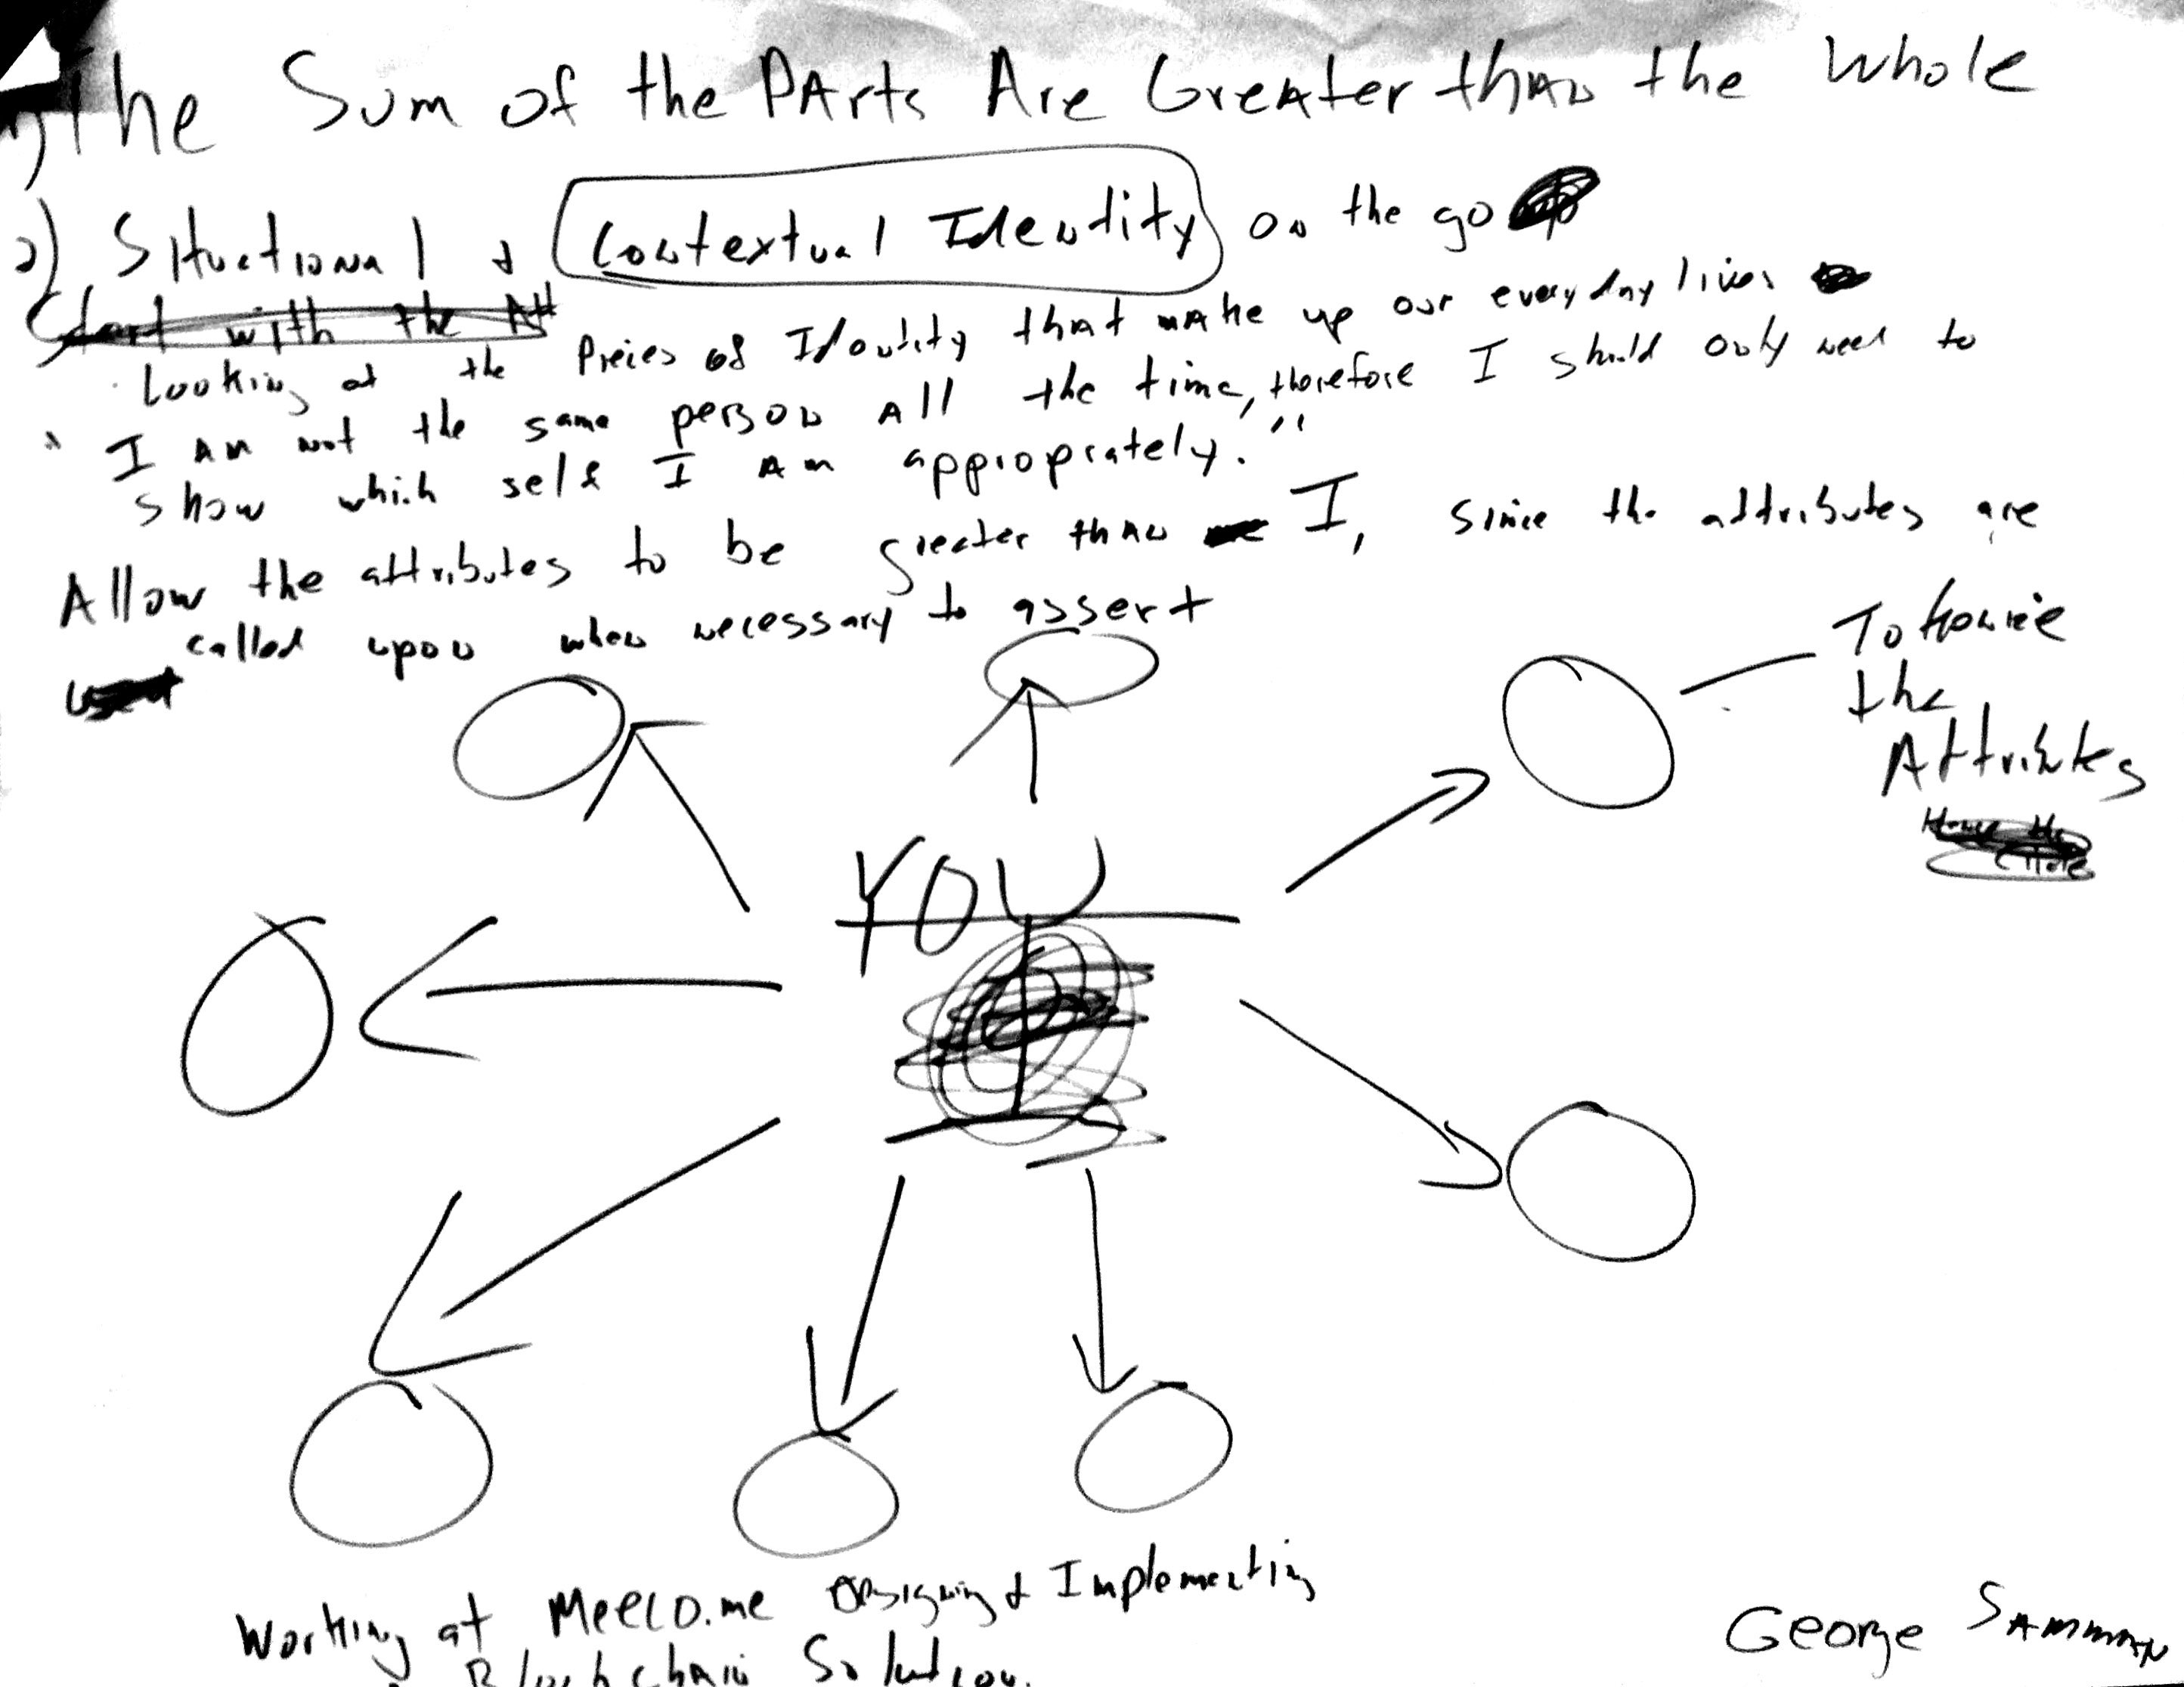 1) The Sum of the PArts Are Greater than the Whole
2) Situational & Contextual Identity on the go
Start with the Att
Looking at the Pieces of Identity that make up our everyday lives
"I am not the same person all the time, therefore I should only need to
show which self I am appropriately."
Allow the attributes to be greater than I, since the attributes are
called upon when necessary to assert
Tokenize
the
Attributes
YOU
Working at Meeco.me Designing & Implementing
Blockchain Solution.
George Samman